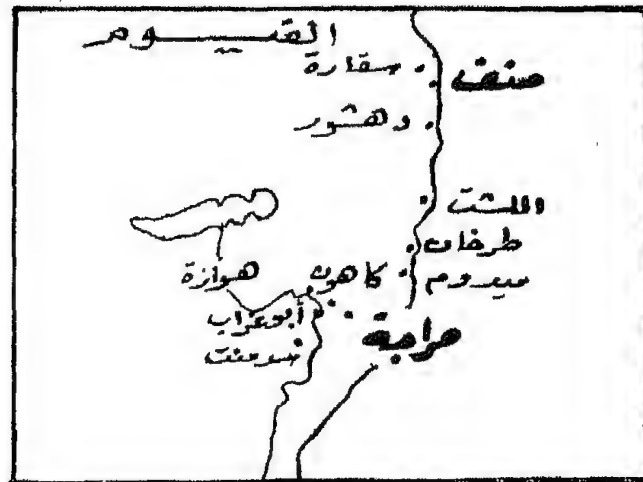 الفيوم
سقارة
منف
دهشور
اللشت
طرخان
ميدوم
كاهون
هوازة
أبو غراب
حراجة
سدمنت